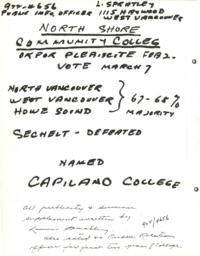 922-4656 L. SPRATLEY
PUBLIC INFO. OFFICER 1115 HAYWOOD
WEST VANCOUVER
NORTH SHORE
COMMUNITY COLLEG
OKFOR PLEBISCITE FEB 2-
VOTE MARCH 7
NORTH VANCOUVER
WEST VANCOUVER 67-65%
HOWE SOUND MAJORITY
SECHELT - DEFEATED
NAMED
CAPILANO COLLEGE
All publicity &
supplement written by
922/4656
also acted as Public Relations
officer for first two years of College